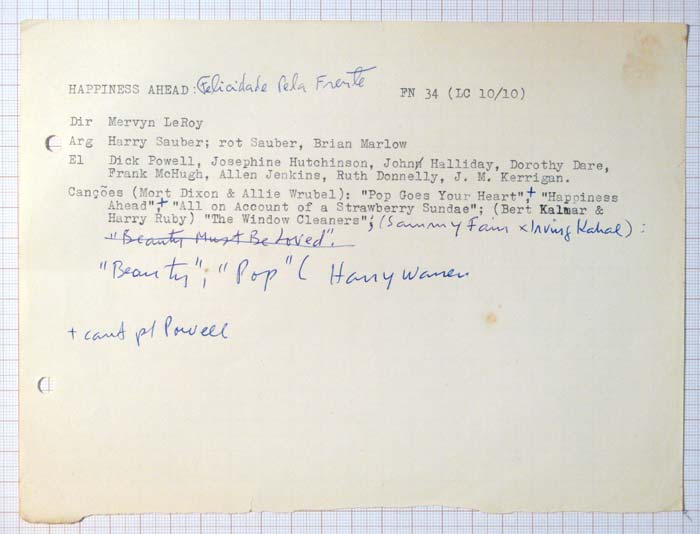 HAPPINESS AHEAD: Felicidade Pela Frente FN 34 (LC 10/10)
Dir Mervyn LeRoy
Arg Harry Sauber; rot Sauber, Brian Marlow
El Dick Powell, Josephine Hutchinson, John Halliday, Dorothy Dare,
Frank McHugh, Allen Jenkins, Ruth Donnelly, J. M. Kerrigan.
Canções (Mort Dixon & Allie Wrubel): "Pop Goes Your Heart",+ "Happiness
Ahead"+ "All on Account of a Strawberry Sundae"; (Bert Kalmar &
Harry Ruby) "The Window Cleaners"; (Sammy Fain x Irving Kahal):
"Beauty Must Be Loved".
"Beauty"; "Pop" ( Harry Warren
+ cant p/ Powell